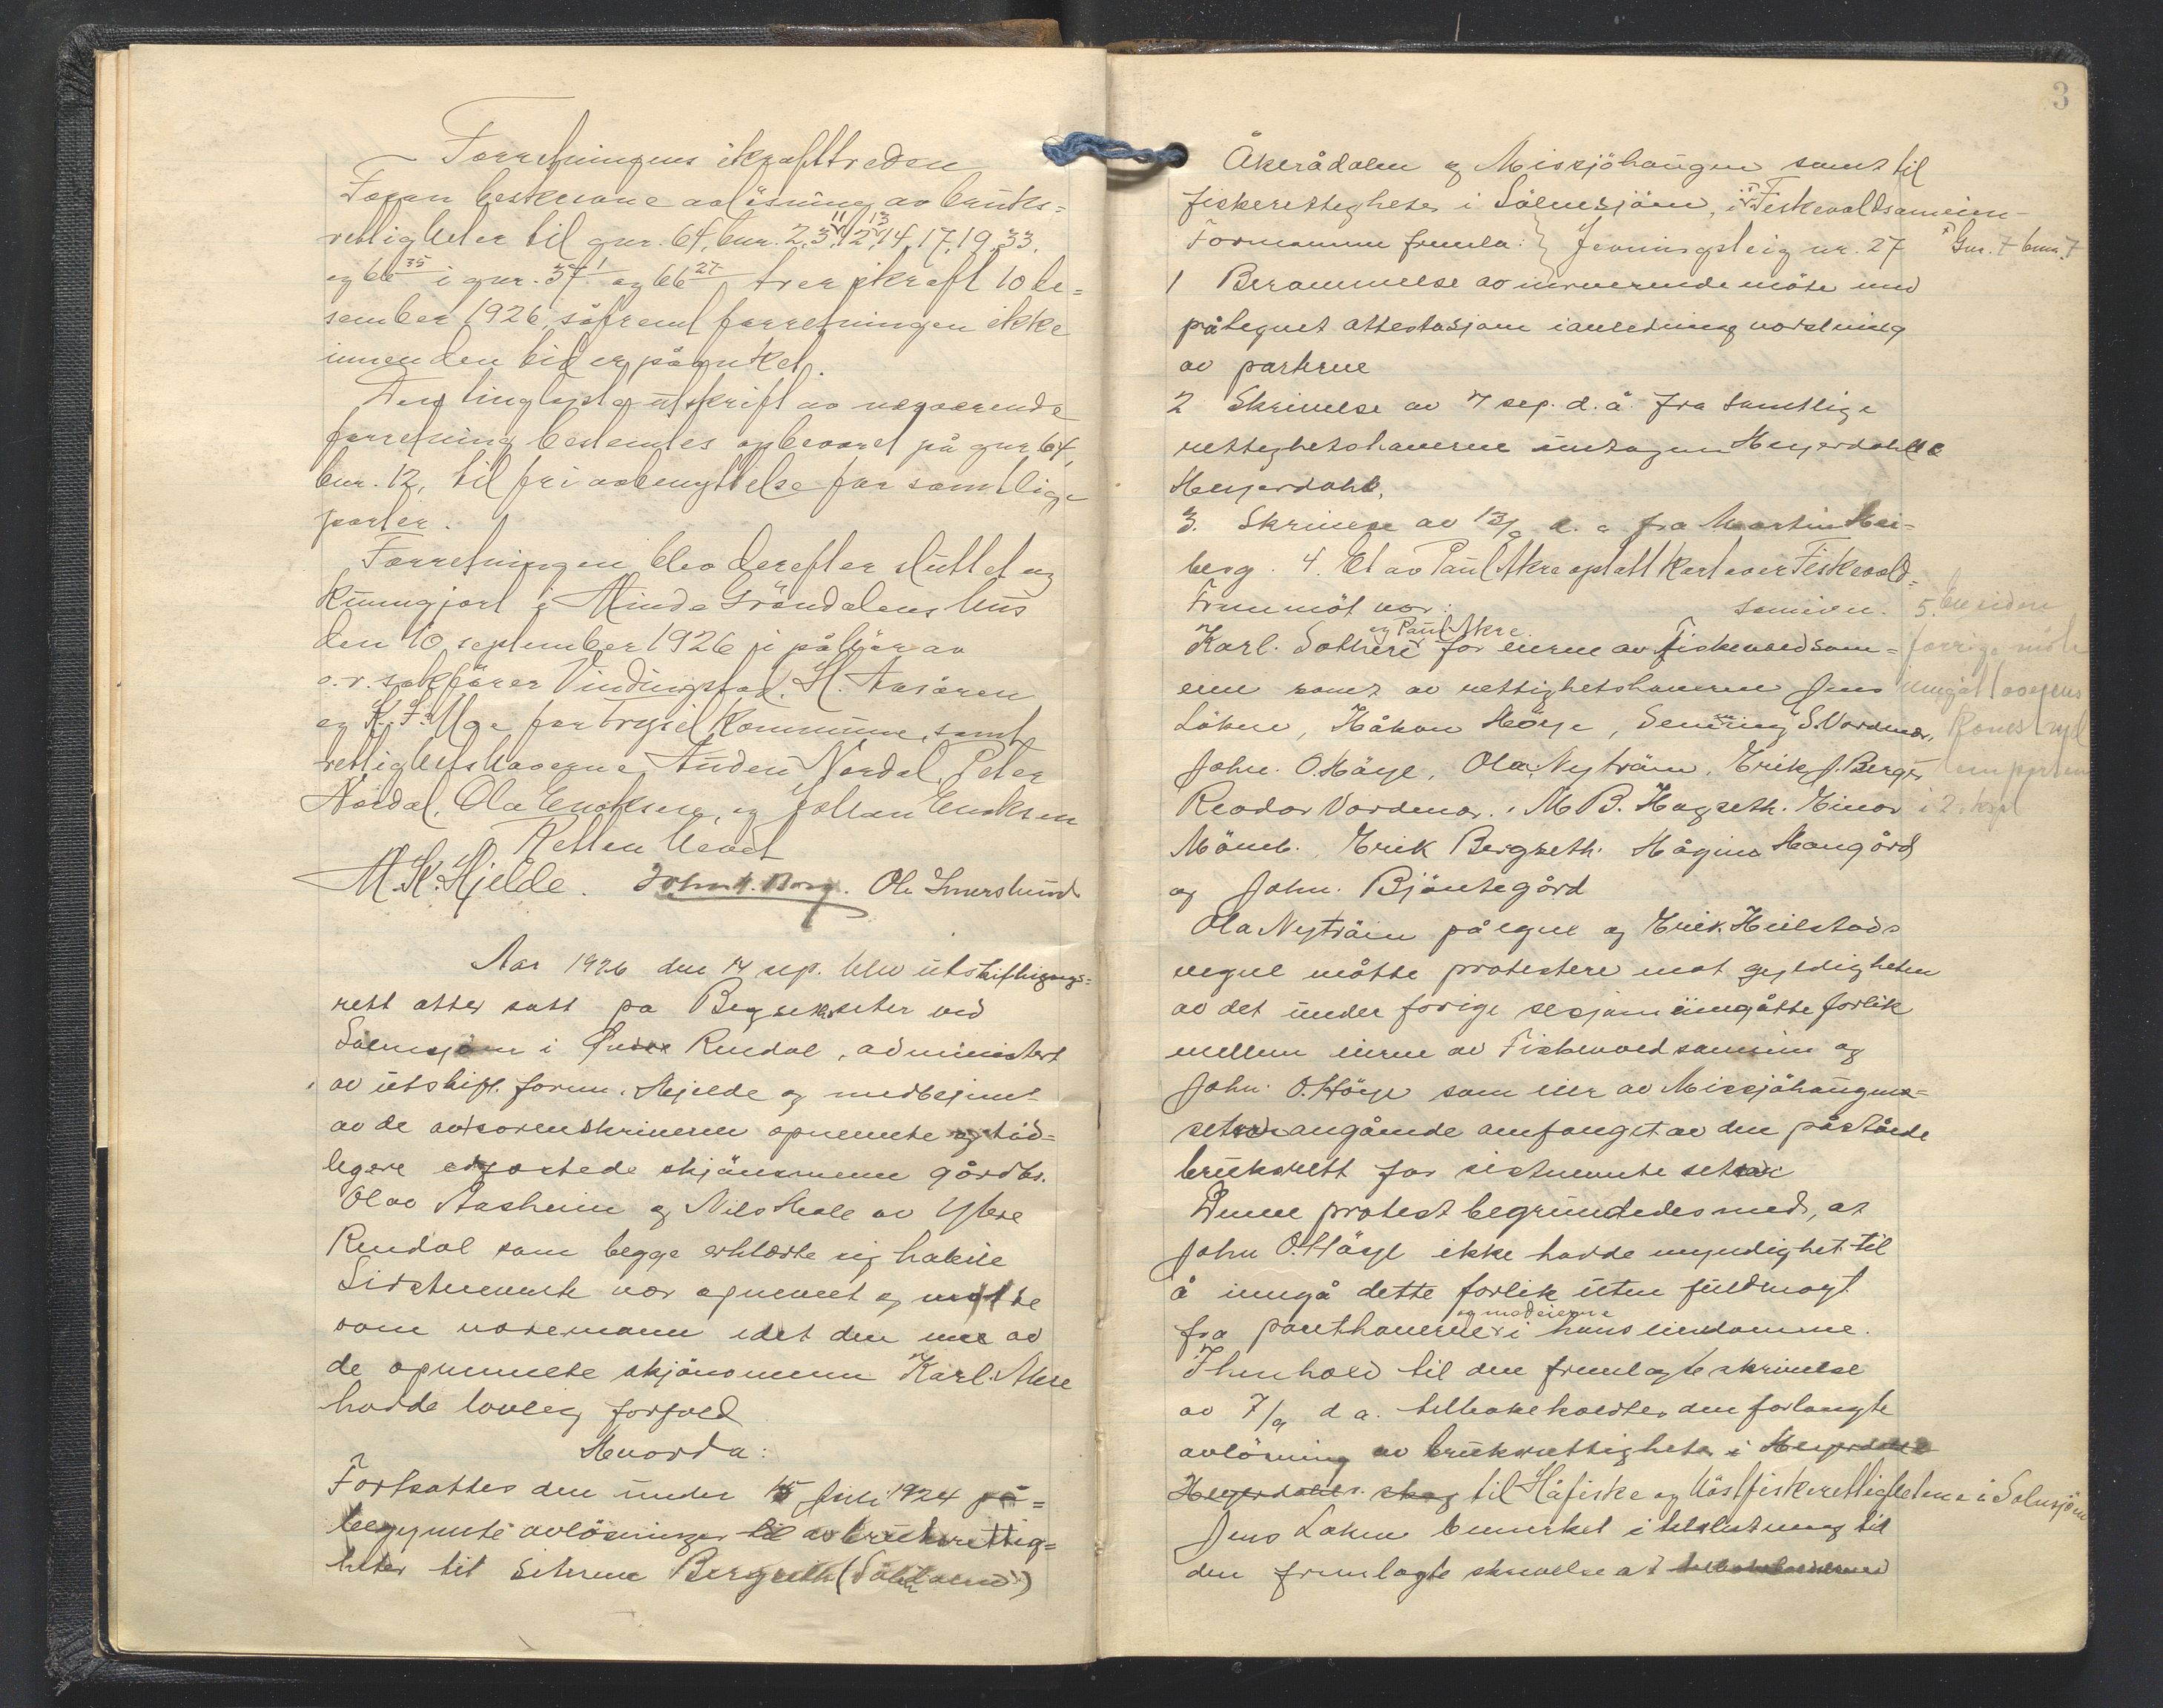 Forretningens ikrafttreden
Foran beskrevne avlösning av bruks=
rettigheter til gnr. 64, bnr. 2, 3, 11, 12, 13, 14, 17, 19, 33,
og 66 35 i gnr. 37 1 og 66 27 trer ikraft 10 de=
sember 1926, såfremt forretningen ikke
innen den tid er påanket.
Den tinglyste utskrift av nærværende
forretning bestemtes opbevaret på gnr. 64,
bnr. 12, til fri avbenyttelse for samtlige
parter.
Forretningen blev derefter sluttet og
kunngjort i Minde Gröndalens hus
den 10 september 1926 i påhör av
o.r. sakförer Vindingstad, H. Aasåren
og K. F. Moe for Trysil kommune, samt
rettighetshaverne Anders Nordal, Peter
Nordal, Ola Enoksen, og Johan Enoksen
Retten hevet
M. K. Hjelde. John H. Borg. Ole Smerslund
Aar 1926 den 14 sep. blev utskiftnings=
rett atter satt på Bergsetseter ved
Sölensjöen i Övre Rendal, administert
av utskift. form. Hjelde og medbetjent
av de av sorenskriveren opnevnte og tid=
ligere edfæstede skjönsmenn gårdbr.
Olav Aasheim og Nils Hcole av Ytre
Rendal som begge erklærte sig habile
Sistnevnte var opnevnt og møtte
som varemann idet den ene av
de opnevnte skjönsmenn Karl Akre
hadde lovlig forfald
Hvorda:
Fortsattes den under 15 juli 1924 på=
begynnte avlösninger til av bruksrettig=
heter til setrene Bergseth (Sölen)
3
Åkerådalen og Misjöhaugen samt til
fiskerettigheter i Sölensjöen, i Fiskevoldsameien-
Formannen fremla: } Jevningsteig nr. 27 x Gnr. 7 bnr. 7
1 Berammelse av nærværende möte med
påtegnet attestasjon i anledning varsling
av parterne
2 Skrivelse av 7 sep. d.å. fra samtlige
rettighetshaverne untagen Heyerdahl &
Heyerdahl.
3. Skrivelse av 13/9 d. a fra Martin Hei=
berg. 4. Et av Paul Akre optatt kart over Fiskevold=
Fremmöt var: sameien. 5. En siden
og Paul Akre.
Karl Solheri for eierne av Fiskevoldsam= forrige möte
eien samt av rettighetshaverne Jens inngåt overens
Løken, Håkon Höye, Semming S. Vardmor, komst
John O. Höye, Ola Nyträen, Erik J. Berget, om
Reodor Vardmor, M B. Hagseth. Einar i 2. kpl
Mömb., Erik Bergseth. Hågen Haugård
og John Bjöntegård
Ola Nyträen på egne og Erik Heilstads
vegne måtte protestere mot gyldigheten
av det under forrige sesjon inngåtte forlik
mellem eierne av Fiskevoldsameien og
John O. Höye som eier av Missjöhaugens=
seter angående omfanget av den påståede
bruksrett for sistnevnte seter
Denne protest begrundedes med, at
John O. Höye ikke hadde myndighet til
å inngå dette forlik uten fuldmagt
og medeierne
fra panthaverne i hans eiendomme.
I henhold til den fremlagte skrivelse
av 7/9 d a. tilbakeholdtes den forlangte
avlösning av bruksrettigheter i Heyerdahl &
Heyerdahls skog til Håfiske og höstfiskerettighetene i Sölensjöen
Jens Løken bemerket i tilslutning til
den fremlagte skrivelse at